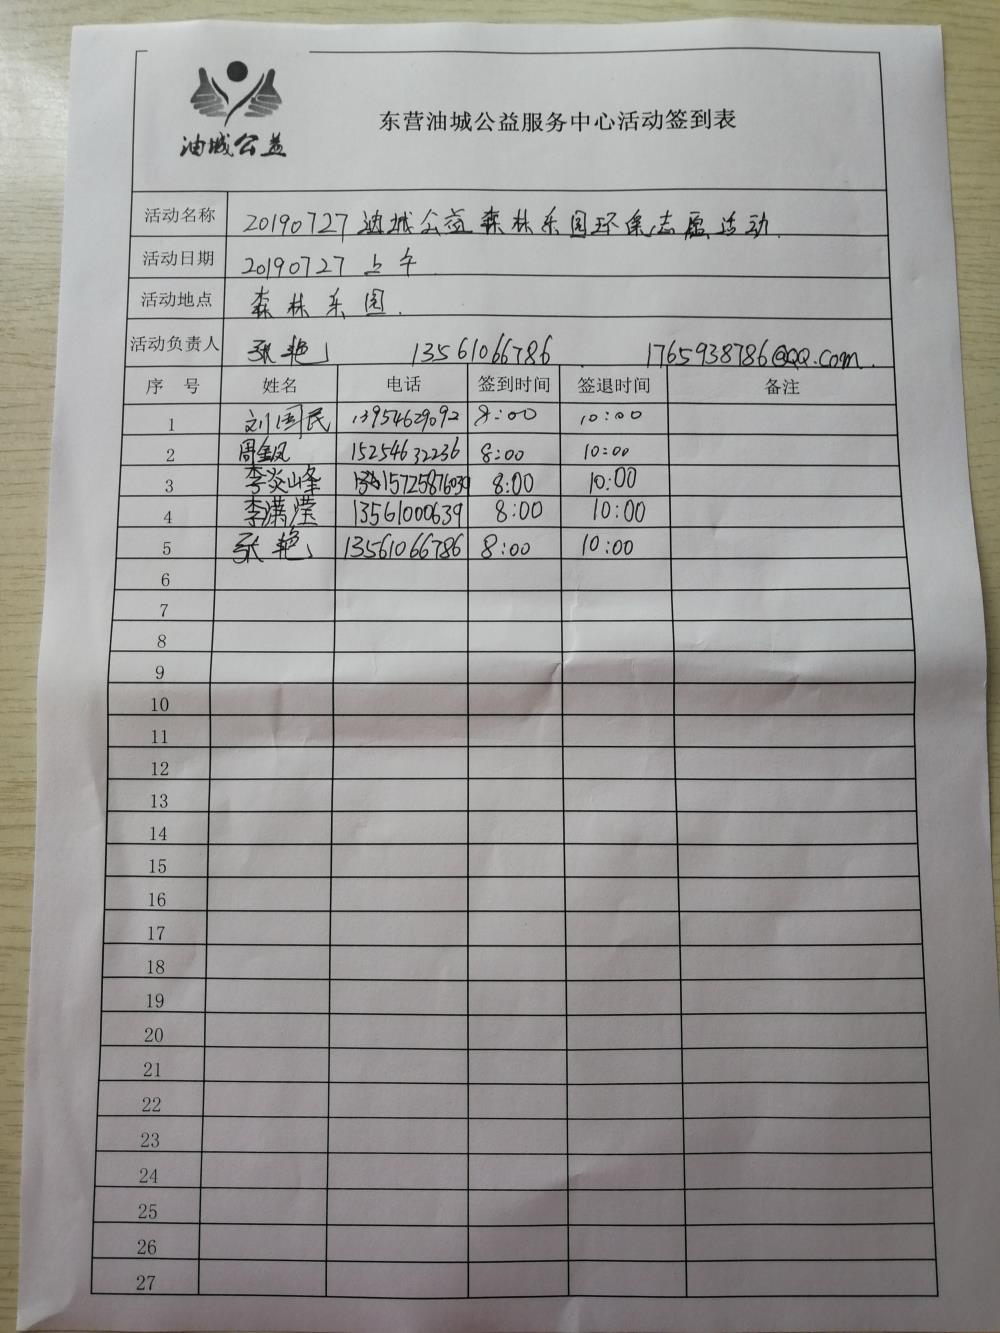 油城公益
东营油城公益服务中心活动签到表
活动名称 20190727油城公益森林乐园环保志愿活动.
活动日期 20190727 上午
活动地点 森林乐园.
活动负责人 张艳 13561066786 1765938786@QQ.com.
序 号 姓名 电话 签到时间 签退时间 备注
1 刘国民 13954629092 8:00 10:00
2 周金凤 15254632236 8:00 10:00
3 李炎峰 15725876039 8:00 10:00
4 李满滢 13561000639 8:00 10:00
5 张艳 13561066786 8:00 10:00
6
7
8
9
10
11
12
13
14
15
16
17
18
19
20
21
22
23
24
25
26
27